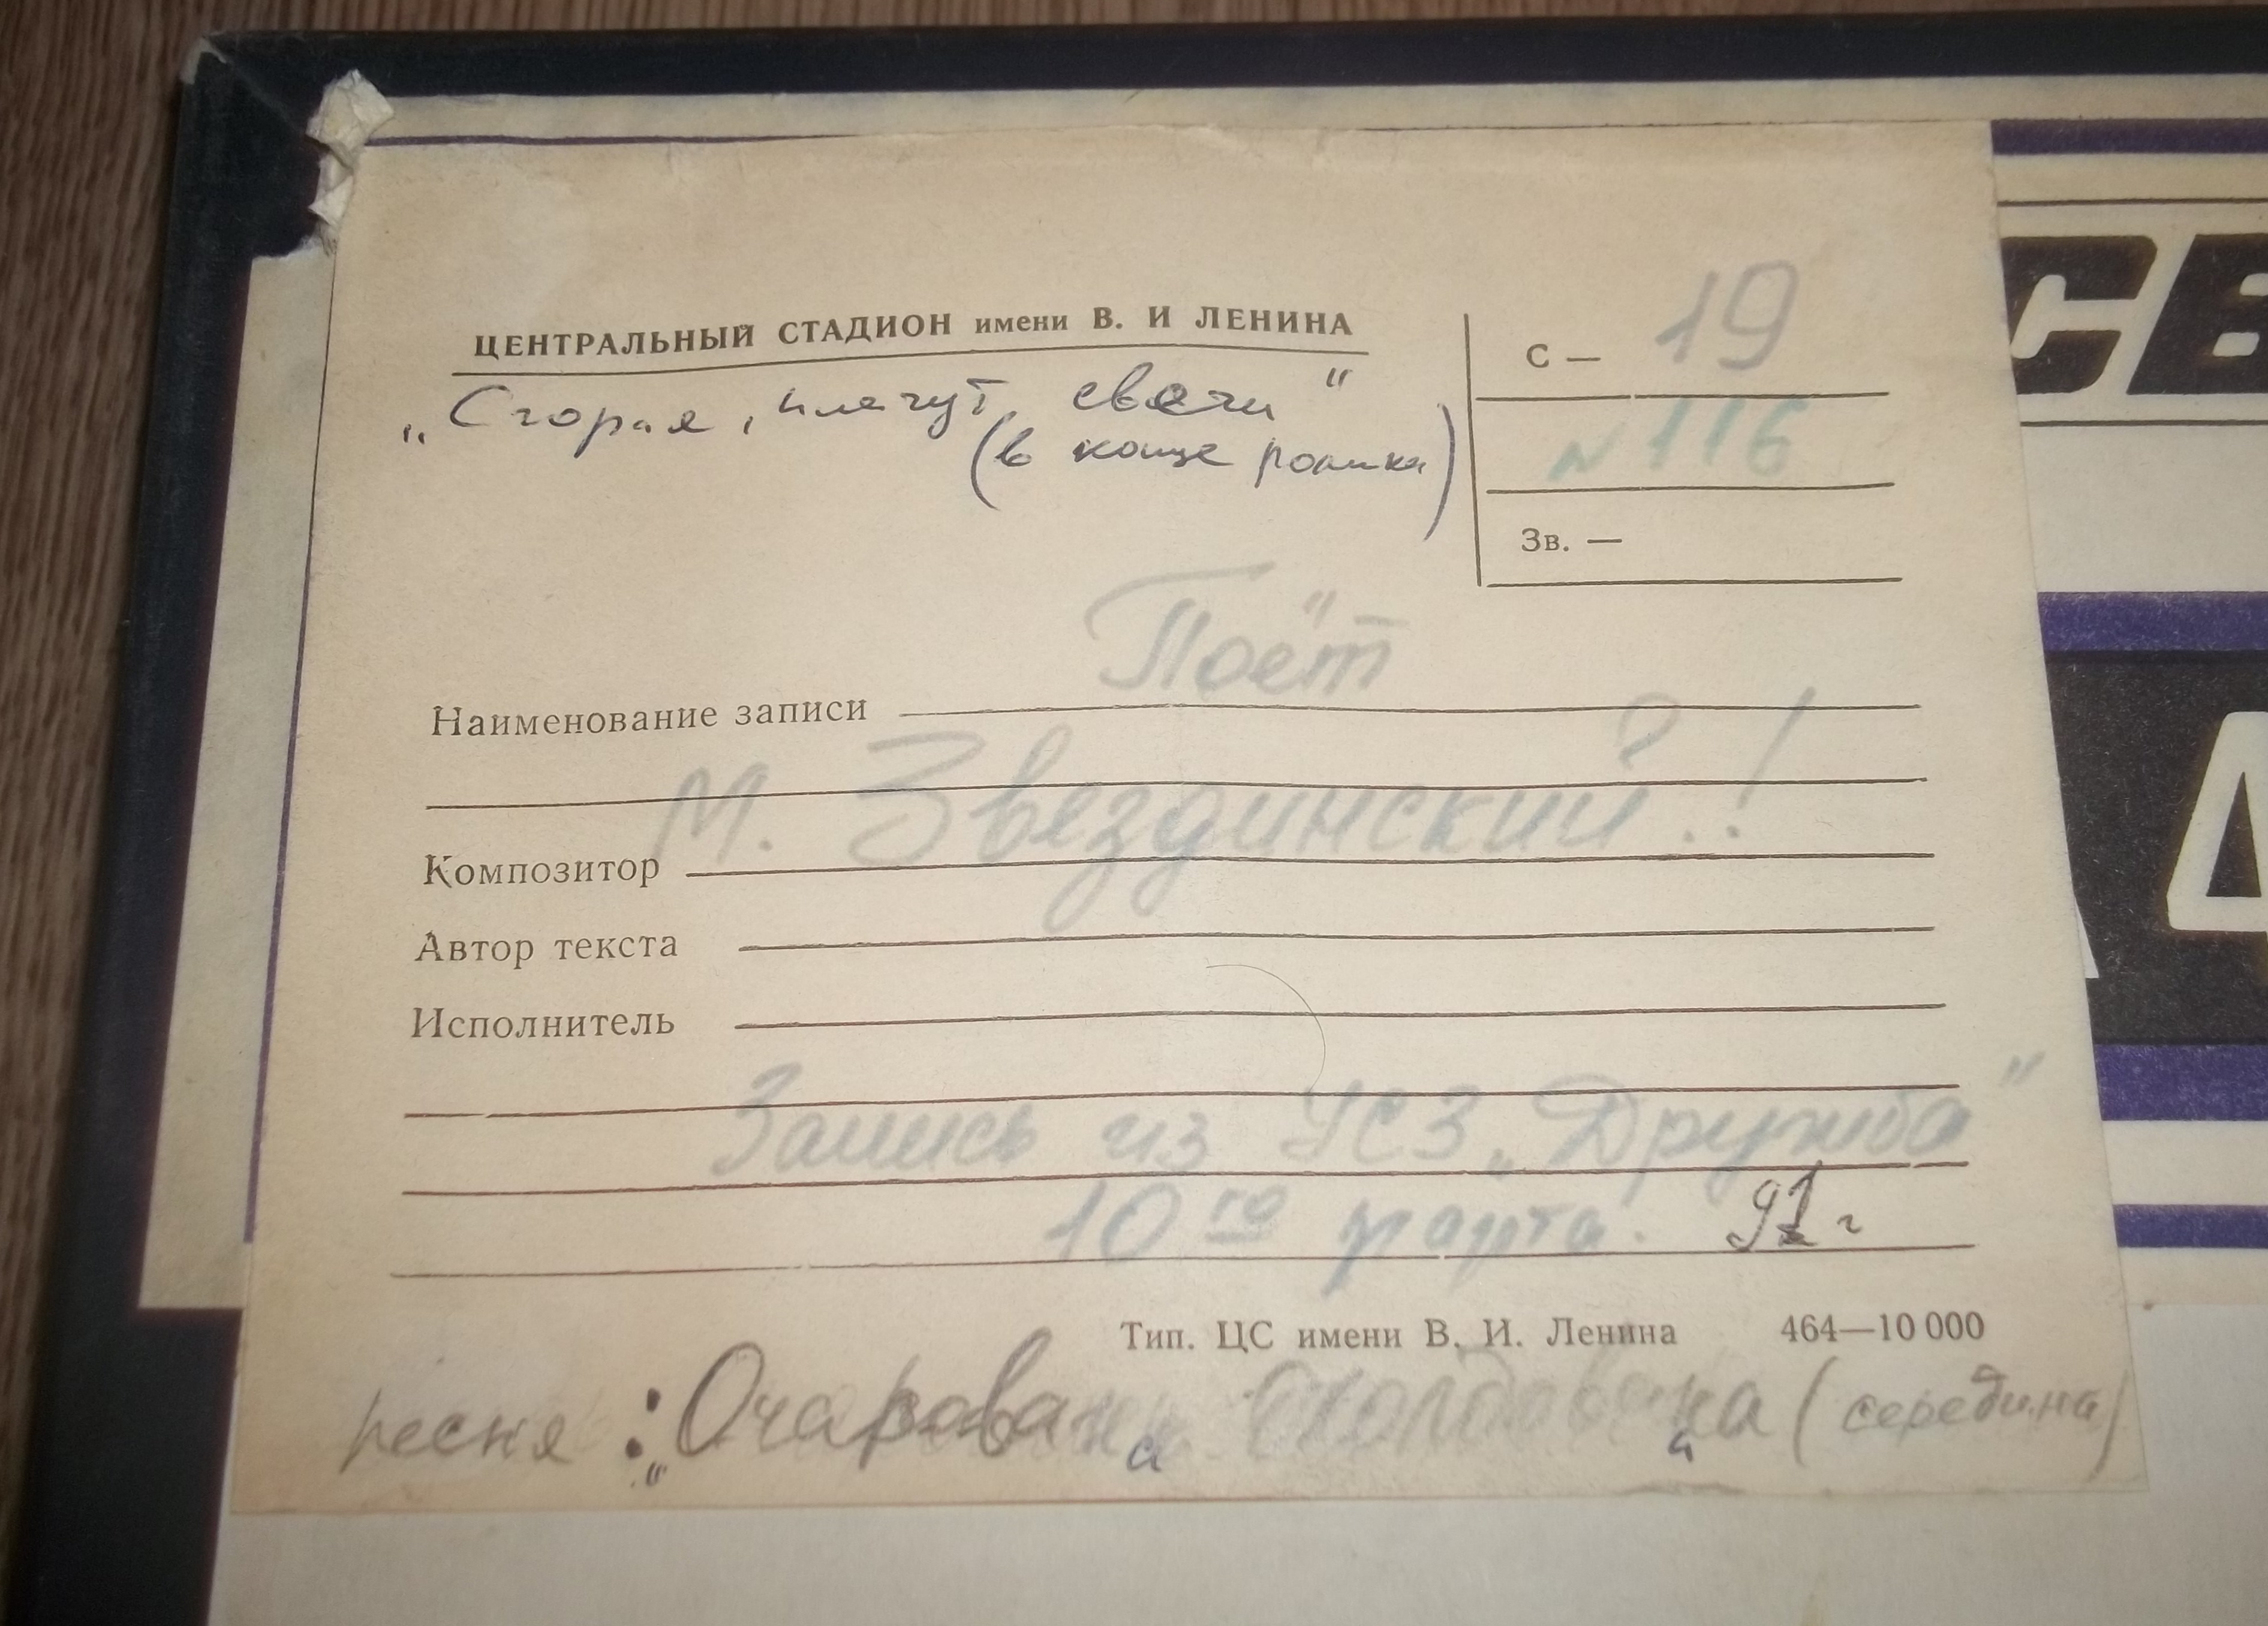 ЦЕНТРАЛЬНЫЙ СТАДИОН имени В. И ЛЕНИНА
„Сгорая, плачут свечи"
(в конце ролика)
С — 19
№ 116
Зв. —
Наименование записи Поёт
М. Звездинский.!
Композитор
Автор текста
Исполнитель
Запись из УСЗ „Дружба"
10го марта. 91 г
Тип. ЦС имени В. И. Ленина 464—10 000
песня : „Очарована околдована" (середина)
СВ